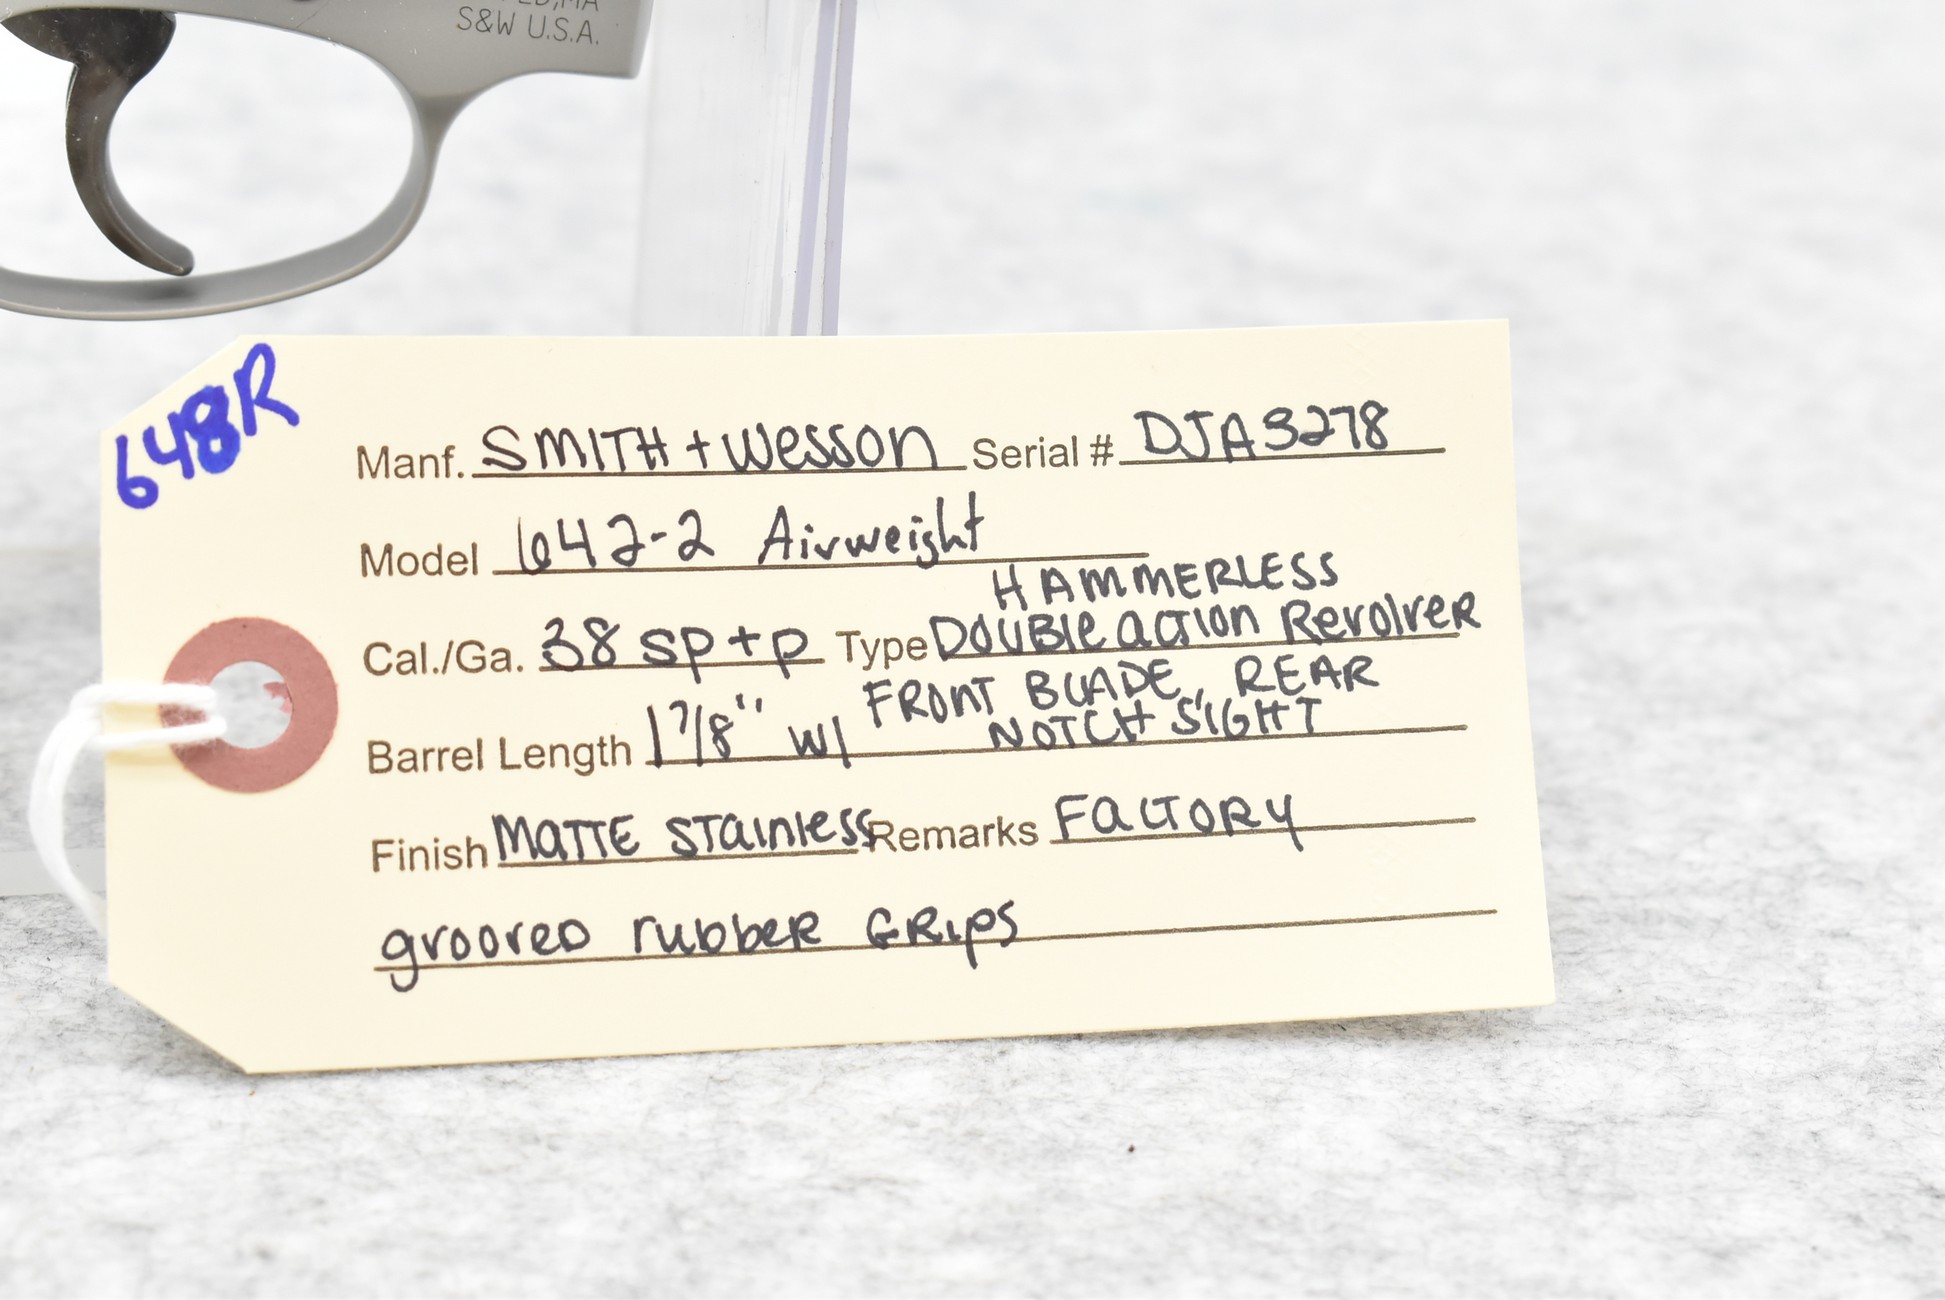 S&W U.S.A.
648R
Manf. SMITH + Wesson Serial # DJA3278
Model 642-2 Airweight
HAMMERLESS
Cal./Ga. 38 sp+p Type Double action Revolver
FRONT BLADE, REAR
Barrel Length 1 7/8" w/ NOTCH SIGHT
Finish MATTE STainless Remarks FACTORY
grooved rubber GRips